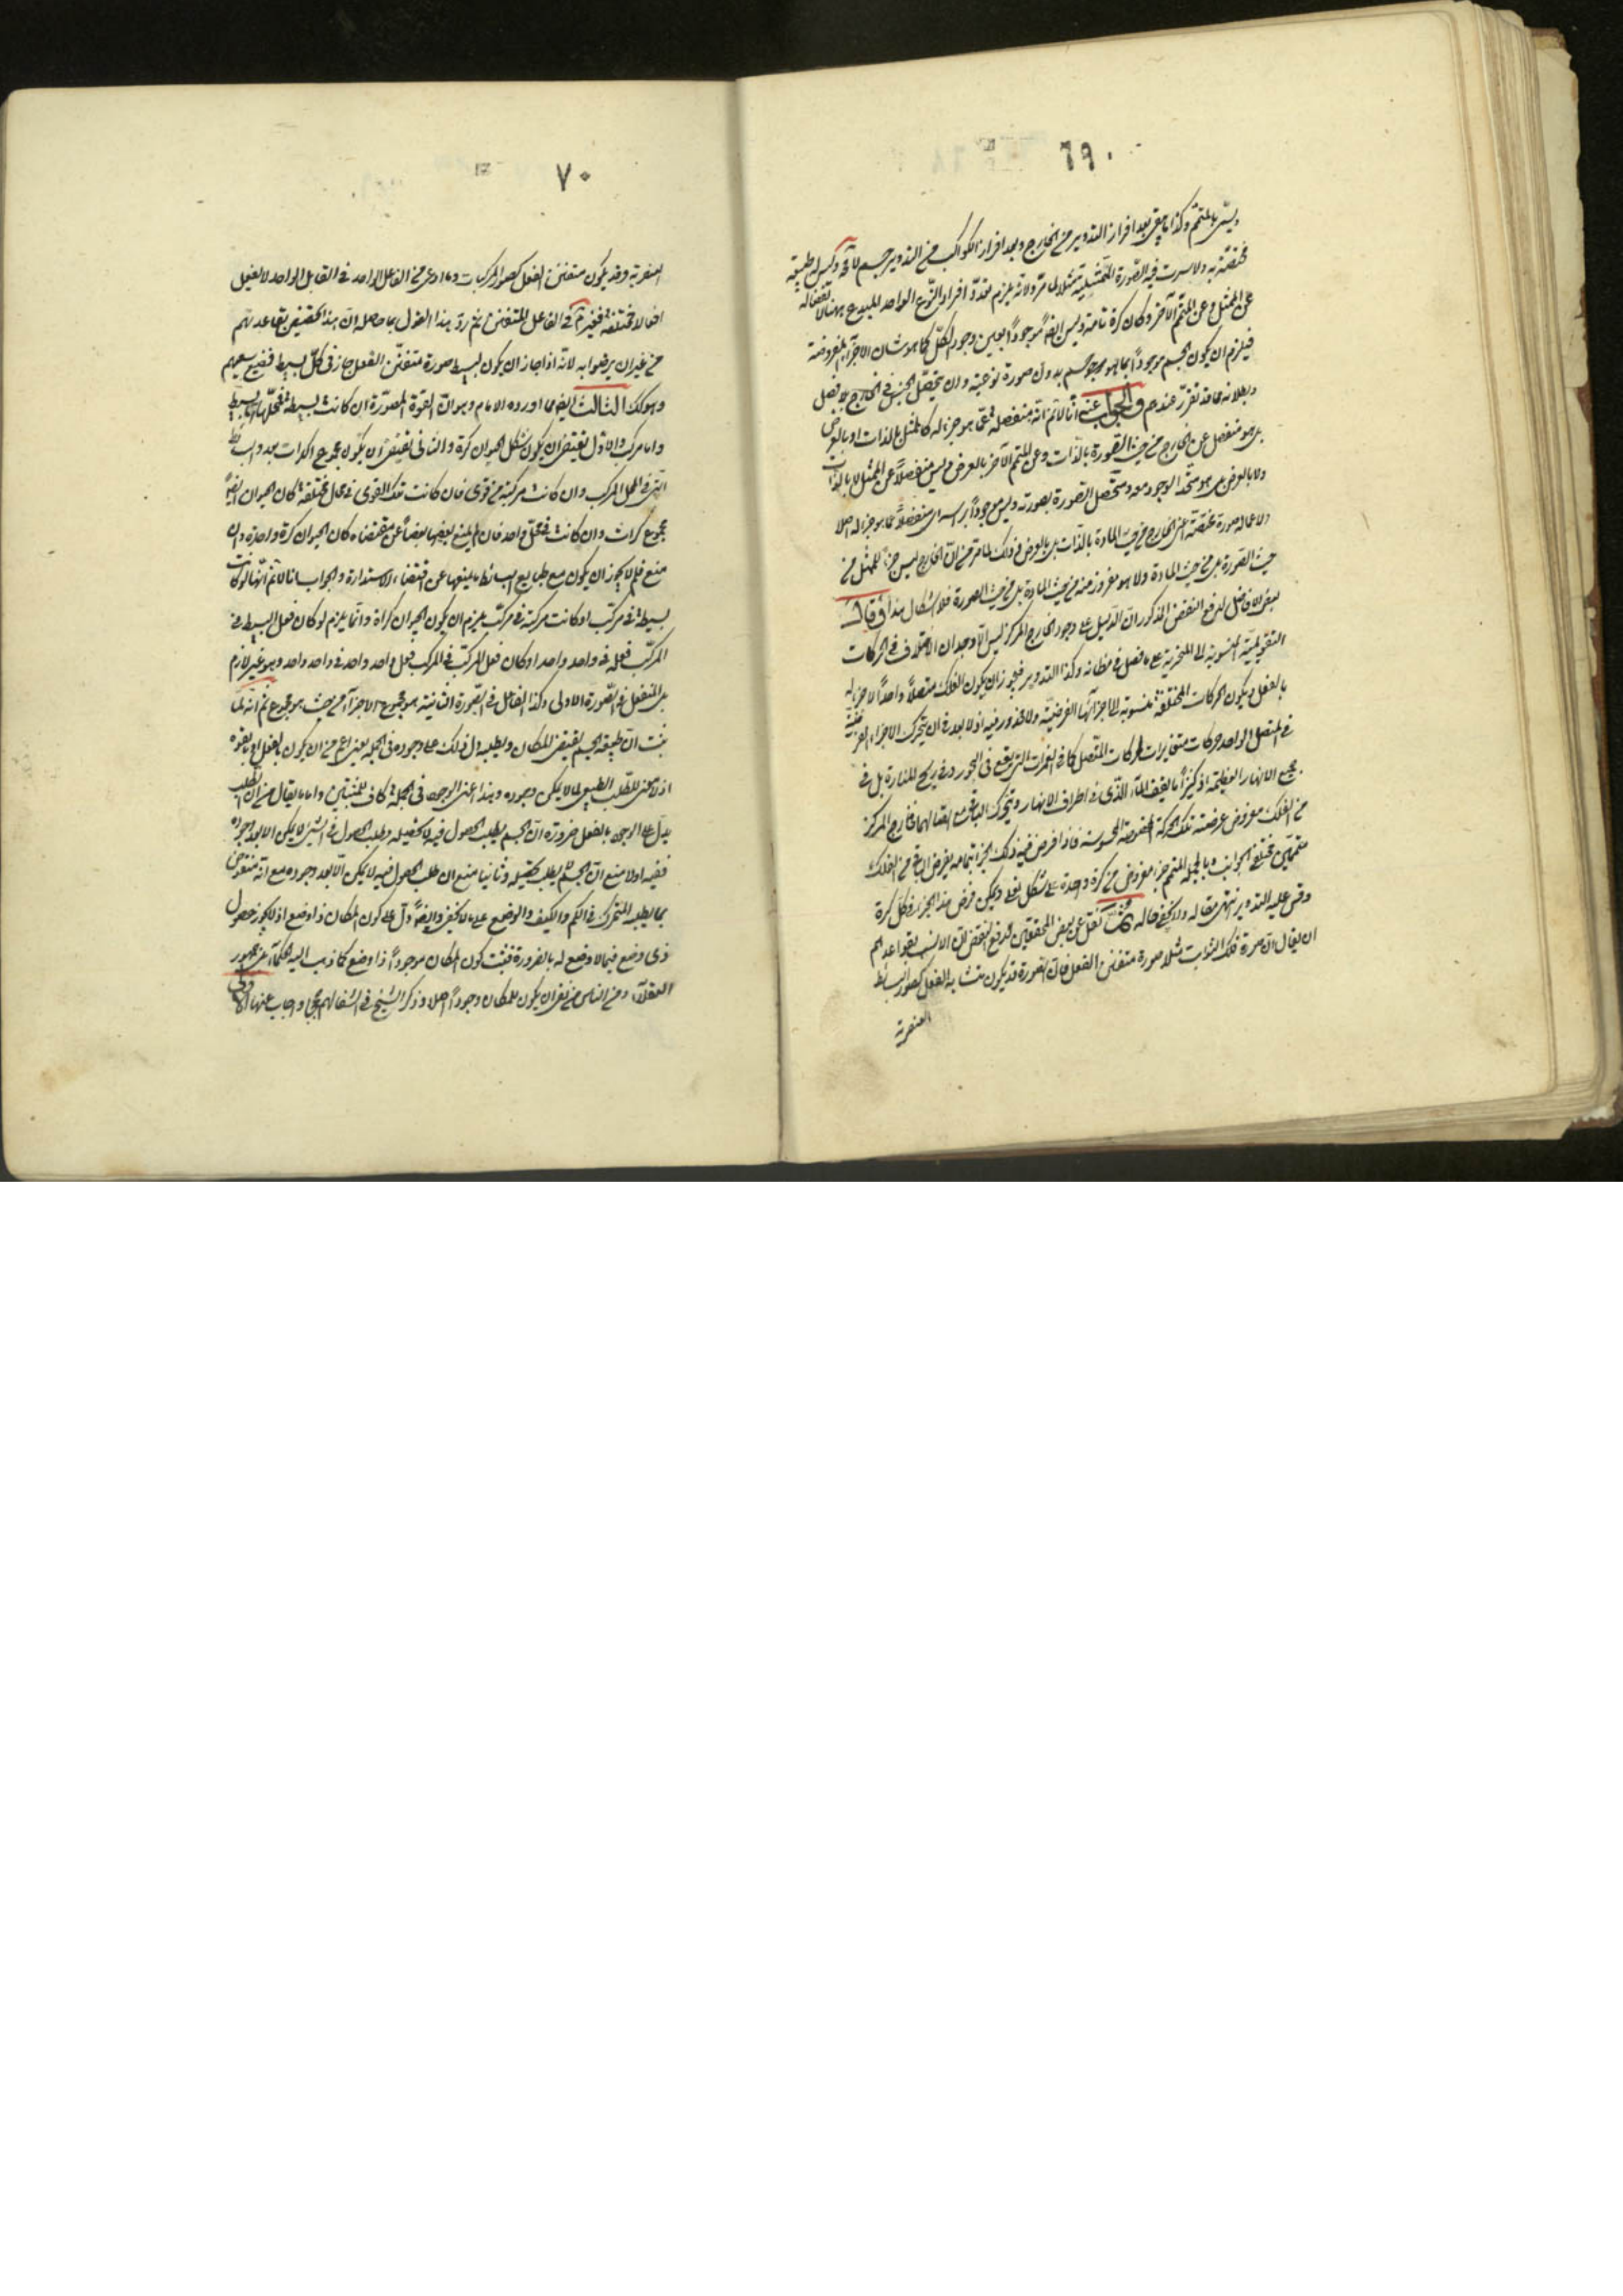 ٦٩
ويسمى بالمتمم وكذا ما يبقى بعد افراز التدوير من الخارج وبعد افراز الكواكب من التدوير جسم لا وليس له طبيعة
مختصة به ولا سرت فيه الصورة الممثلية مثلا لما مر ولانه يلزم تعدد افراد النوع الواحد المبدع بهنالا نفصاله
عن الممثل وعن المتمم الآخر وكان كرة تامة وليس ايضا موجودا بعين وجود الكل كما هو شان الاجزاء المفروضة
فيلزم ان يكون الجسم موجودا بما هو جسم بدون صورة نوعية وان يتحصل الجنس في الخارج بلا فصل
وبطلانه مما قد تقرر عندهم والجواب عنه انا لا نم انه منفصلة عما هو جزء له كالممثل بالذات او بالعرض
بل هو منفصل عن الخارج من حيث الصورة بالذات وعن المتمم الآخر بالعرض وليس منفصلا عن الممثل لا بالذات
ولا بالعرض بل هو متحد الوجود معه ومتحصل الصورة بصورته وليس موجودا براسه اى منفصلا عما هو جزء له اصلا
ولا عماله صورة مختصة اعنى الخارج من حيث المادة بالذات بل بالعرض وذلك لما مر من ان الخارج ليس جزء للممثل من
حيث الصورة بل من حيث المادة ولا هو مفروز منه من حيث المادة بل من حيث الصورة فلا اشكال هذا وقال
بعض الافاضل لدفع النقض المذكور ان الدليل على وجود الخارج المركز ليس الا وجدان الاختلاف في الحركات
التقويمية المنسوبة الى المتحيرة على ما فصل في مظانه وكذا التدوير فيجوز ان يكون الفلك متصلا واحدا لا جزء له
بالفعل ويكون الحركات المختلفة منسوبة الى اجزائها الفرضية ولا محذور فيه اذ لا بعد في ان يتحرك الاجزاء الفرضية
في المتصل الواحد حركات متغايرات لحركات المتصل كما في الغمرات التي يقع في البحور وفي ريح المنارة بل في
جميع الانهار العظيمة اذ كثيرا ما يقف الماء الذى في اطراف الانهار ويتحرك الباقى مع اتصالهما فخارج المركز
من الفلك مفروض عرضته تلك الحركة المخصوصة المحسوسة فاذا فرض فيه ذلك الجزء بتمامه يفرض الباقى من الفلك
متممين مختلفى الجوانب وبالجملة المتمم جزء مفروض من كرة واحدة على شكل نعلى ويمكن فرض هذا الجزء في كل كرة
وقس عليه التدوير انتهى مقاله ولا يخفى حاله نقل عن بعض المحققين لدفع النقض ان الانسب بقواعدهم
ان يقال ان صورة فلك الثوابت مثلا صورة متفننة الفعل فان الصورة قد يكون متشابه الفعل كصور البسائط
العنصرية
٧٠
العنصرية وقد يكون متفنن الفعل كصور المركبات وما ادعى من الفاعل الواحد في القابل الواحد لا يفعل
افعالا مختلفة فغير في الفاعل المتفنن ثم رد هذا القول بما حاصله ان هذا تخصيص بقاعدتهم
من غير ان يرضوا به لانه اذا جاز ان يكون لبسيط صورة متفنن الفعل جاز في كل بسيط فضيع سعيهم
وهو كك الثالث ايضا مما اورده الامام وهو ان القوة المصورة ان كانت بسيطة فمحلها اما بسيط
واما مركب والاول يقتضى ان يكون شكل الحيوان كرة والثانى يقتضى ان يكون مجموع اكرات بعدد بسائط
التى في المحل المركب وان كانت مركبة من قوى فان كانت تلك القوى في محال مختلفة كان الحيوان ايضا
مجموع كرات وان كانت في محل واحد فان لم يمنع بعضها بعضا عن مقتضاه كان الحيوان كرة واحدة وان
منع فلم لا يجوز ان يكون مع طبايع البسائط ما يمنعها عن اقتضاء الاستدارة والجواب انا لا نم انها لو كانت
بسيطة في مركب او كانت مركبة في مركب يلزم ان يكون الحيوان كراة وانما يلزم لو كان فعل البسيط في
المركب فعله في واحد واحد او كان فعل المركب في المركب فعل واحد واحد في واحد واحد وهو غير لازم
بل المنفعل في الصورة الاولى وكذا الفاعل في الصورة الثانية هو مجموع الاجزاء من حيث هو مجموع ثم انه لما
ثبت ان طبيعة الجسم يقتضى للمكان ويطلبه دل ذلك على وجوده في الجملة يعنى اعم من ان يكون بالفعل او بالقوة
اذ لا معنى للطلب الطبيعى لما لا يمكن وجوده وهذا اعنى الوجود في الجملة كاف للمثبتين واما ما يقال من ان الطلب
يدل على الوجود بالفعل ضرورة ان الجسم يطلب الحصول فيه لا تحصيله وطلب الحصول في الشئ لا يمكن الا بعد وجوده
ففيه اولا منع ان الجسم لم يطلب تحصيله وثانيا منع ان طلب الحصول فيه لا يمكن الا بعد وجوده مع انه منقوض
بما يطلبه المتحرك في الكم والكيف والوضع على ما لا يخفى وايضا دل على كون المكان ذا وضع اذ لا يجوز حصول
ذى وضع فيما لا وضع له بالضرورة فثبت كون المكان موجودا ذا وضع كما ذهب اليه الحكماء بل جمهور
العقلاء ومن الناس من نفى ان يكون للمكان وجودا اصلا وذكر الشيخ في الشفا لهم حججا واجاب عنها